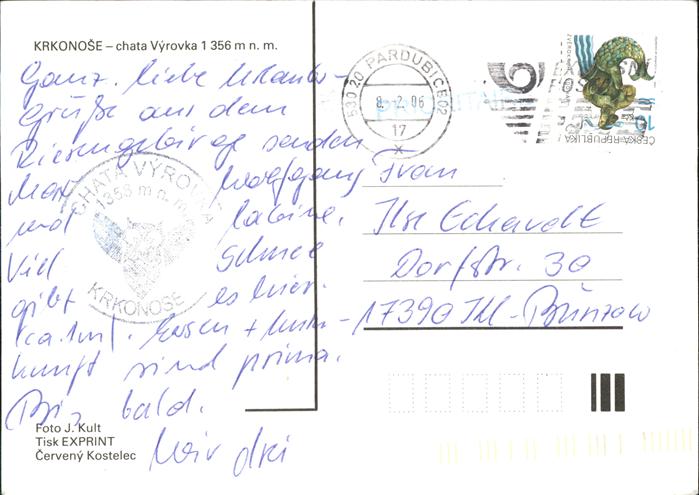 KRKONOŠE – chata Výrovka 1 356 m n. m.
Ganz liebe Urlaubs-
grüße aus dem
Riesengebirge senden
Wolfgang
und Sabine.
Viel Schnee
gibt es hier.
(ca. 1m). Essen + Unter-
kunft sind prima.
Bis bald.
Wir drei
CHATA VÝROVKA
1356 m n. m.
KRKONOŠE
Foto J. Kult
Tisk EXPRINT
Červený Kostelec
530 20 PARDUBICE 02
8.-2. 06
17
x
PRIORITAIRE
ČESKÁ REPUBLIKA
10
Frau
Ilse Eckardt
Dorfstr. 30
17390 Kl-Bünzow